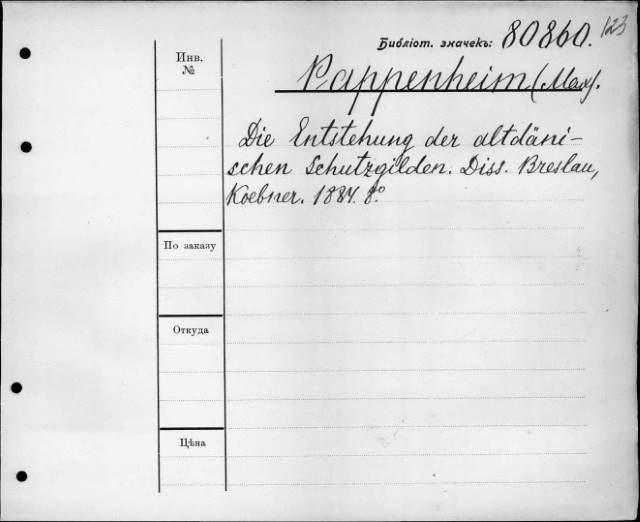 123
Библіот. значекъ: 80860.
Инв. №
Pappenheim (Max).
Die Entstehung der altdäni-
schen Schutzgilden. Diss. Breslau,
Koebner. 1884. 8°.
По заказу
Откуда
Цѣна